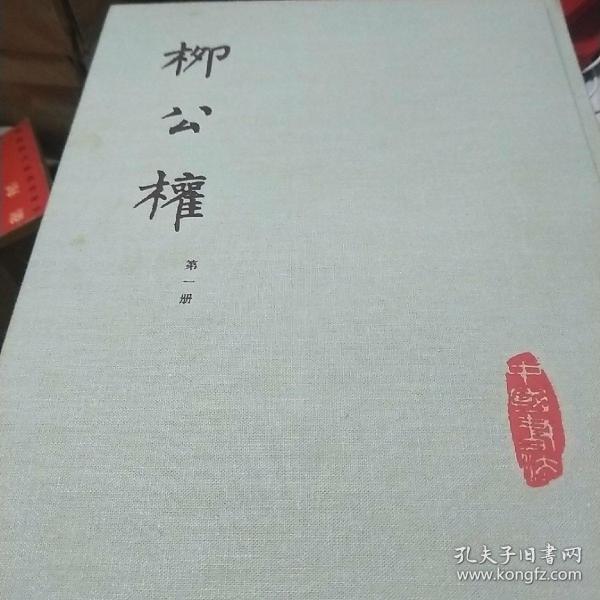 柳公權
第一册
中國書法
孔夫子旧書网
www.kongfz.com